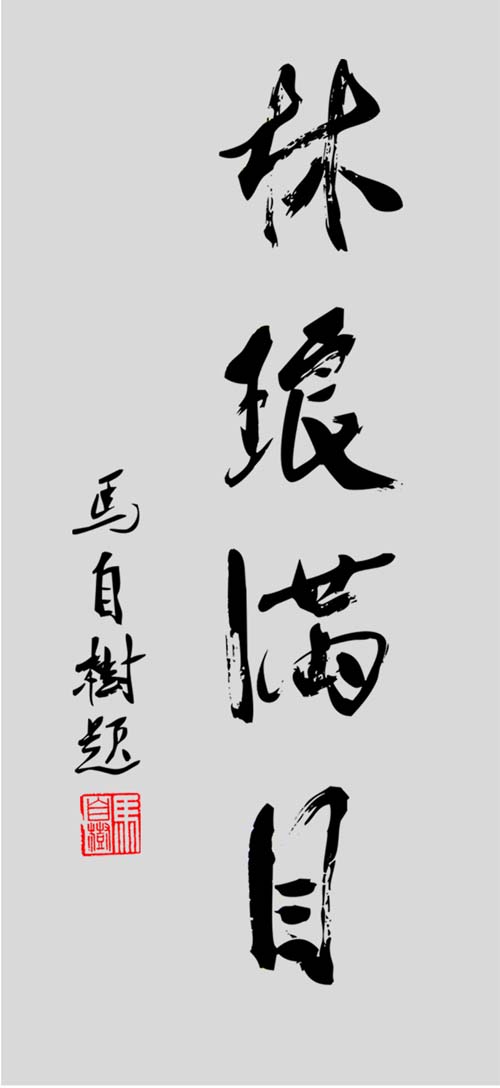 林琅满目
馬自樹题
馬自樹